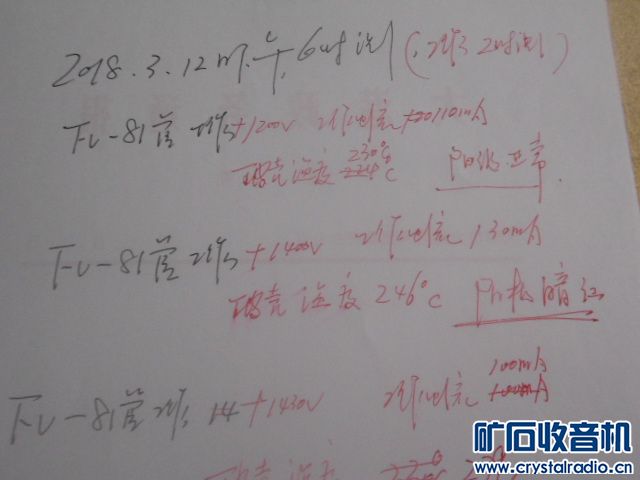 2018.3.12 下午6时测(工作2时测)
FU-81管 工作+1200V 工作电流 110mA
230℃
玻壳温度 ℃ 阳极正常
FU-81管 工作+1400V 工作电流 130mA
玻壳温度 246℃ 阳极暗红
100mA
FU-81管 工作 +1430V 工作电流
玻壳温度
矿石收音机
www.crystalradio.cn